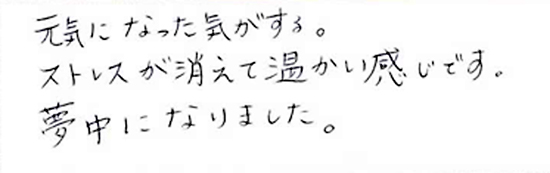 元気になった気がする。
ストレスが消えて温かい感じです。
夢中になりました。